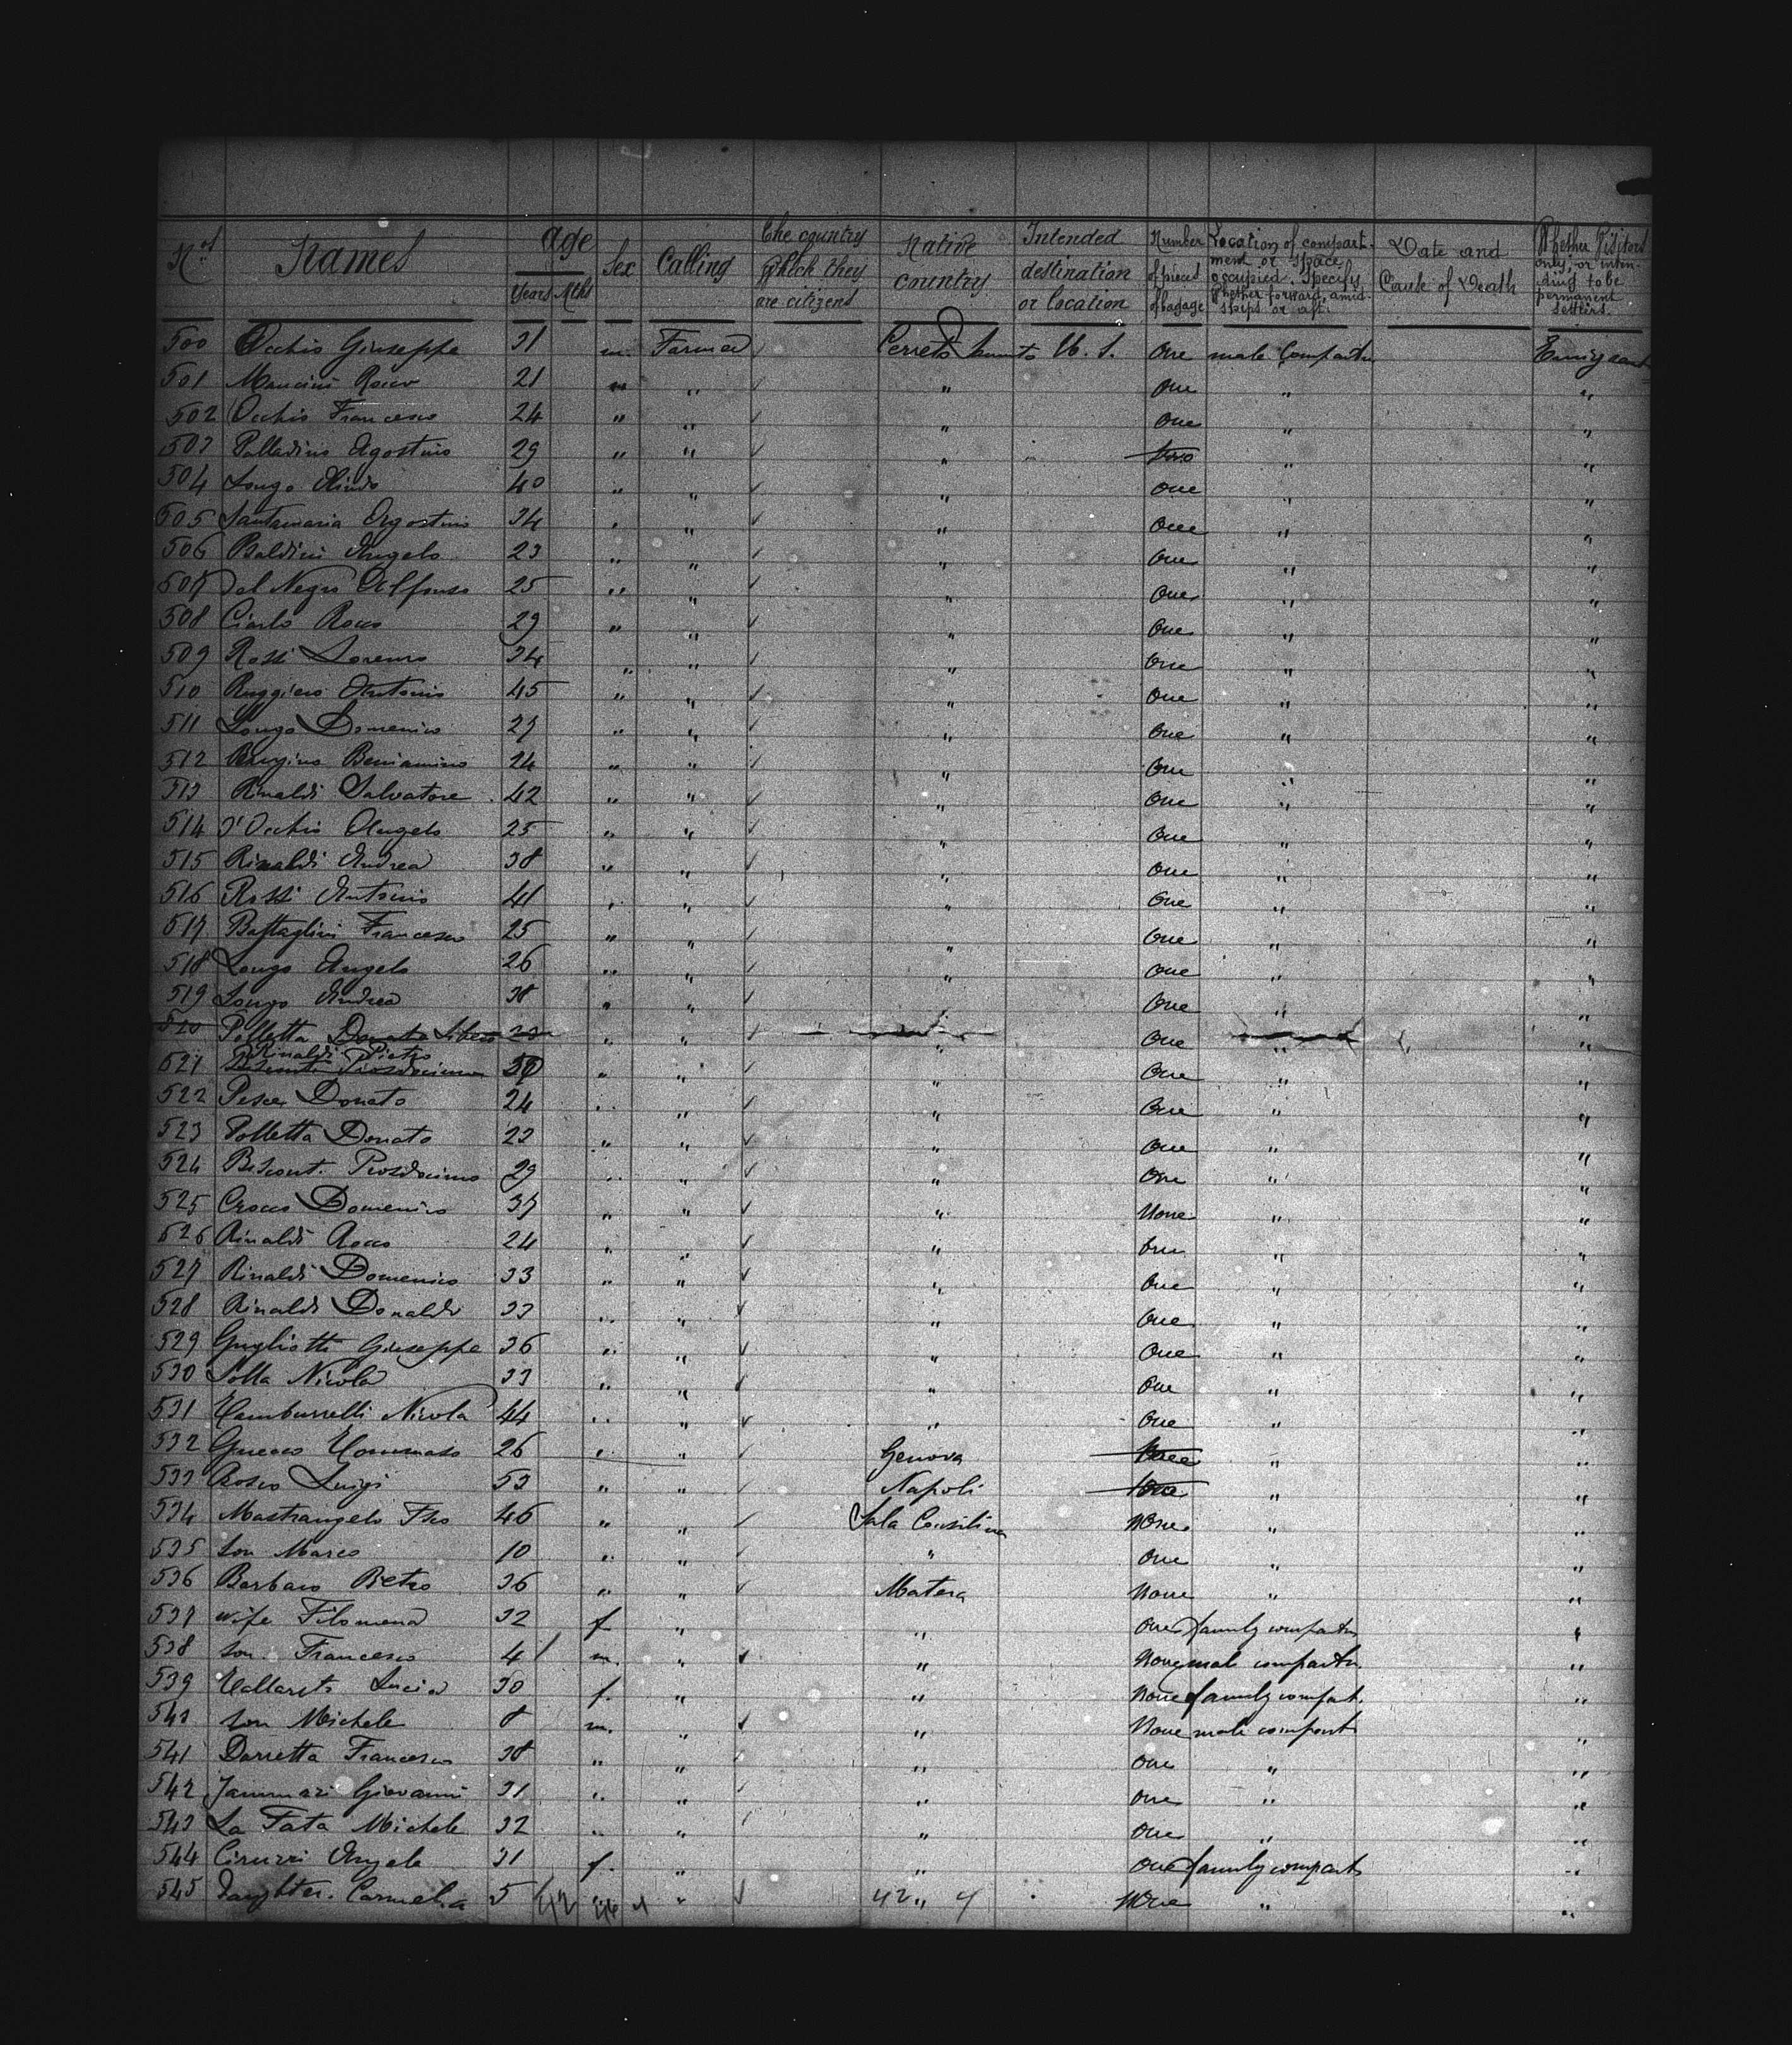 Nos Names age Years Mths Sex Calling The country which they are citizens Native country Intended destination or location Number of pieces of bagage Location of compartment or space occupied. Specify whether forward, amidships or aft. Date and Cause of Death Whether Visitors only, or intending to be permanent settlers.
500 Occhio Giuseppe 31 m. Farmer Cerreto Sannita U. S. One male Compartm Emigrant
501 Mancini Rocco 21 " " " One " "
502 Occhio Francesco 24 " " " One " "
503 Palladino Agostino 29 " " " two " "
504 Longo 40 " " " One " "
505 Santamaria Agostino 34 " " " One " "
506 Baldini Angelo 23 " " " One " "
507 Del Negro Alfonso 25 " " " One " "
508 Ciarlo Rocco 29 " " " One " "
509 Rossi Lorenzo 34 " " " One " "
510 Ruggiero Antonio 45 " " " One " "
511 Longo Domenico 27 " " " One " "
512 Beniamino 24 " " " One " "
513 Rinaldi Salvatore 42 " " " One " "
514 D'Occhio Angelo 25 " " " One " "
515 Rinaldi Andrea 38 " " " One " "
516 Rossi Antonio 41 " " " One " "
517 Battaglini Francesco 25 " " " One " "
518 Longo Angelo 26 " " " One " "
519 Longo Andrea 38 " " " One " "
520 Polletta Donato " " " One " "
Rinaldi Pietro
521 " " " One " "
522 Pesce Donato 24 " " " One " "
523 Polletta Donato 23 " " " One " "
524 Prosdocimo 29 " " " One " "
525 Crocco Domenico 37 " " " None " "
526 Rinaldi Rocco 24 " " " One " "
527 Rinaldi Domenico 33 " " " One " "
528 Rinaldi Donaldo 33 " " " One " "
529 Gugliotti Giuseppe 36 " " " One " "
530 Solla Nicola 33 " " " One " "
531 Tamburrelli Nicola 44 " " " One " "
532 Tommaso 26 " " Genova " "
533 Luigi 53 " " Napoli " "
534 Mastrangelo Fsco 46 " " Sala Consilina None " "
535 son Marco 10 " " " One " "
536 Barbaro Pietro 36 " " Matera None " "
537 wife Filomena 32 f " " One family compartm "
538 son Francesco 4 m. " " None male compartm. "
539 Lucia 30 f. " " None family compart. "
540 son Michele 8 m. " " None male compart "
541 Darretta Francesco 38 " " " One " "
542 Jammazi Giovanni 31 " " " One " "
543 La Fata Michele 32 " " " One " "
544 Ciruzzi Angela 31 f. " " One family compart "
545 daughter Carmela 5 " " 42 " 4 None " "